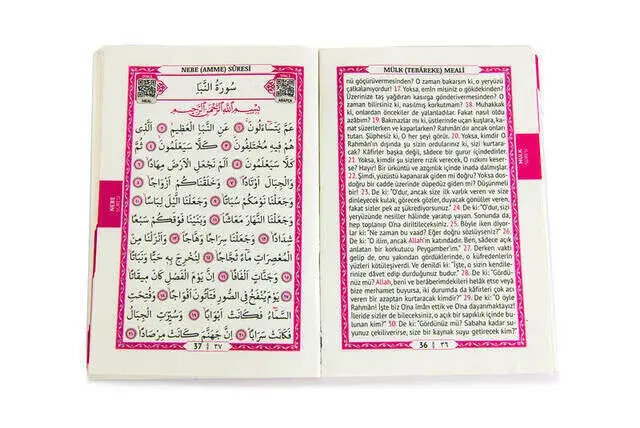 NEBE (AMME) SÛRESİ
DİNLE
DİNLE
سورة النبأ
MEAL
ARAPÇA
بسم الله الرحمن الرحيم
عَمَّ يَتَسَاءَلُونَ ﴿١﴾ عَنِ النَّبَإِ الْعَظِيمِ ﴿٢﴾ الَّذِي
هُمْ فِيهِ مُخْتَلِفُونَ ﴿٣﴾ كَلَّا سَيَعْلَمُونَ ﴿٤﴾ ثُمَّ
كَلَّا سَيَعْلَمُونَ ﴿٥﴾ أَلَمْ نَجْعَلِ الْأَرْضَ مِهَادًا ﴿٦﴾
وَالْجِبَالَ أَوْتَادًا ﴿٧﴾ وَخَلَقْنَاكُمْ أَزْوَاجًا ﴿٨﴾
وَجَعَلْنَا نَوْمَكُمْ سُبَاتًا ﴿٩﴾ وَجَعَلْنَا اللَّيْلَ لِبَاسًا ﴿١٠﴾
وَجَعَلْنَا النَّهَارَ مَعَاشًا ﴿١١﴾ وَبَنَيْنَا فَوْقَكُمْ سَبْعًا
شِدَادًا ﴿١٢﴾ وَجَعَلْنَا سِرَاجًا وَهَّاجًا ﴿١٣﴾ وَأَنْزَلْنَا مِنَ
الْمُعْصِرَاتِ مَاءً ثَجَّاجًا ﴿١٤﴾ لِنُخْرِجَ بِهِ حَبًّا وَنَبَاتًا ﴿١٥﴾
وَجَنَّاتٍ أَلْفَافًا ﴿١٦﴾ إِنَّ يَوْمَ الْفَصْلِ كَانَ مِيقَاتًا ﴿١٧﴾
يَوْمَ يُنْفَخُ فِي الصُّورِ فَتَأْتُونَ أَفْوَاجًا ﴿١٨﴾ وَفُتِحَتِ
السَّمَاءُ فَكَانَتْ أَبْوَابًا ﴿١٩﴾ وَسُيِّرَتِ الْجِبَالُ
فَكَانَتْ سَرَابًا ﴿٢٠﴾ إِنَّ جَهَنَّمَ كَانَتْ مِرْصَادًا ﴿٢١﴾
37 ٣٧
NEBE
SURESİ
MÜLK (TEBÂREKE) MEALİ
nü göçürüvermesinden? O zaman bakarsın ki, o yeryüzü
çalkalanıyordur! 17. Yoksa, emîn misiniz o gökdekinden?
Üzerinize taş yağdıran kasırga göndermesinden? O
zaman bilirsiniz ki, nasılmış korkutmam? 18. Muhakkak
ki, onlardan öncekiler de yalanladılar. Fakat nasıl oldu
azâbım? 19. Bakmazlar mı ki, üstlerinde uçan kuşlara, ka-
nat süzerlerken ve kaparlarken? Rahmân'dır ancak onları
tutan. Şüphesiz ki, O her şeyi görür. 20. Yoksa, kimdir O
Rahmân'ın dışında şu sizin ordularınız ki, sizi kurtara-
cak? Kâfirler başka değil, sâdece bir gurur içindedirler.
21. Yoksa, kimdir şu sizlere rızık verecek, O rızkını kese-
rse? Hayır! Bir ürküntü ve azgınlık içinde inada dalmışlar.
22. Şimdi, yüzüstü kapanarak giden mi doğru? Yoksa dos-
doğru bir cadde üzerinde düpedüz giden mi? Düşünmeli
bir! 23. De ki: "O'dur, ancak size ilk varlık veren ve size
dinleyecek kulak, görecek gözler, duyacak gönüller veren,
fakat sizler pek az şükrediyorsunuz." 24. De ki: "O'dur, sizi
yeryüzünde nesiller hâlinde yaratıp yayan. Sonunda da,
hep toplanıp O'na diriltileceksiniz. 25. Böyle iken diyor-
lar ki: "Ne zaman bu vaad? Eğer doğru söylüyseniz?" 26.
De ki: "O ilim, ancak Allah'ın katındadır. Ben, sâdece açık
anlatan bir korkutucuyum Peygamber'im." 27. Derken vakti
gelip de, onu yakından gördüklerinde, o küfredenlerin
yüzleri kötüleşiverdi. Ve denildi ki: "İşte, o sizin kendile-
rinize dâvet edip durduğunuz budur." 28. De ki: "Gördü-
nüz mü? Allah, beni ve berâberimdekileri helâk etse veyâ
bize merhamet buyursa, iki durumda da kâfirleri çok acı
veren bir azaptan kurtaracak kimdir?" 29. De ki: "O öyle
Rahmân! İşte biz O'na îmân ettik ve O'na dayanmaktayız!
İleride sizler de bileceksiniz, o açık bir sapıklık içinde bu-
lunan kim?" 30. De ki: "Gördünüz mü? Sabaha kadar su-
yunuz çekiliverirse, size bir kaynak suyu getirecek kim?"
36 ٣٦
MÜLK
SURESİ